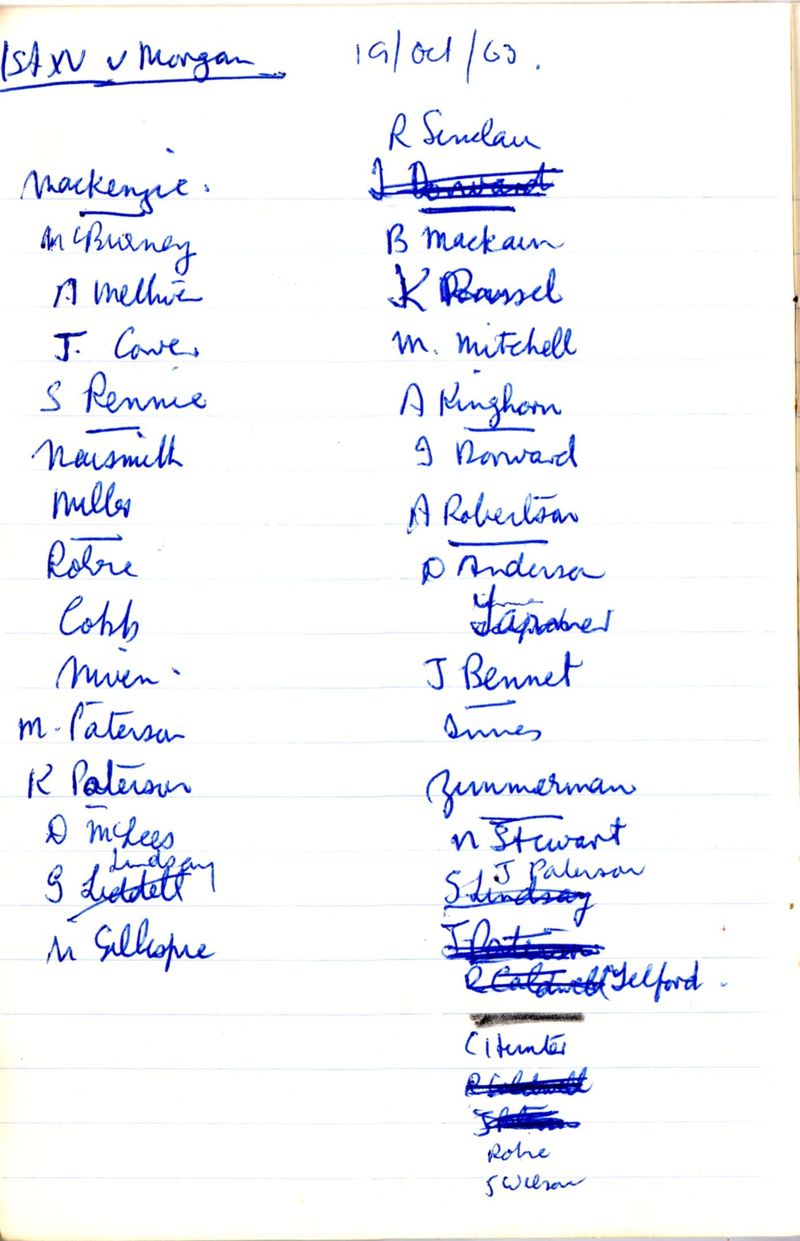 1st XV v Morgan 19/Oct/63.
Mackenzie.
McBurney
A Melhuis
J. Cower
S Rennie
Naismith
Miller
Robie
Cobb
Niven.
M. Paterson
K Paterson
D McLees
Lindsay
G Liddell
N Gillespie
R Sinclair
I Dorward
B Mackain
K Bassel
M. Mitchell
A Kinghorn
I Dorward
A Robertson
D Anderson
J Bennet
Innes
Zimmerman
N Stewart
J Paterson
S Lindsay
J Paterson
R Caldwell Telford.
C Hunter
R Caldwell
Robie
S Wilson